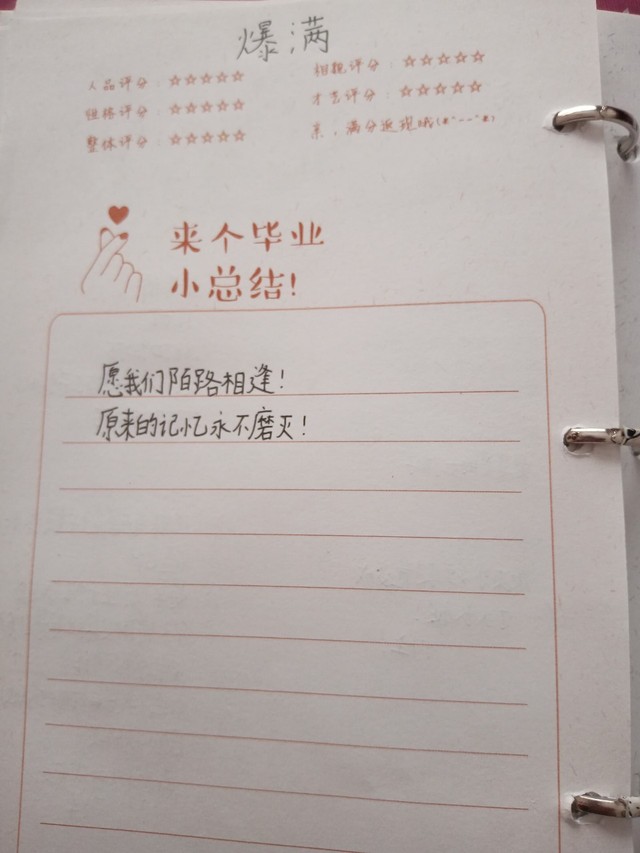 爆满
人品评分：☆☆☆☆☆ 相貌评分：☆☆☆☆☆
性格评分：☆☆☆☆☆ 才艺评分：☆☆☆☆☆
整体评分：☆☆☆☆☆ 亲，满分返现哦(*^--^*)
来个毕业
小总结!
愿我们陌路相逢!
原来的记忆永不磨灭!